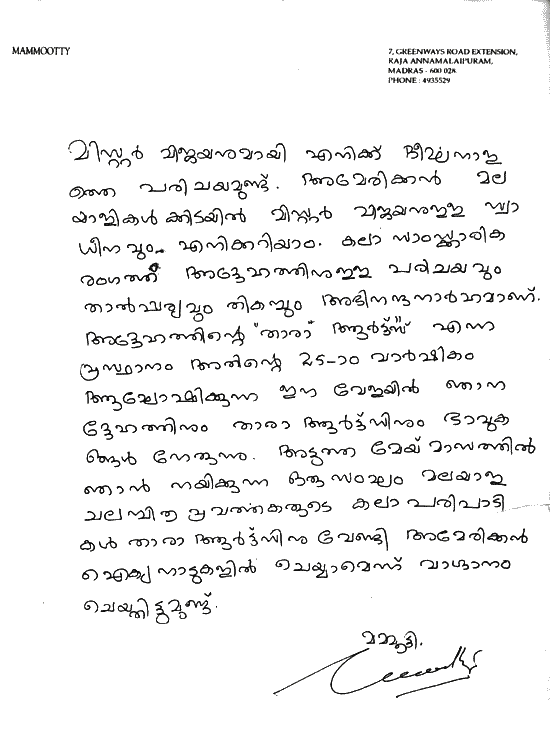 MAMMOOTTY
7, GREENWAYS ROAD EXTENSION,
RAJA ANNAMALAIPURAM,
MADRAS - 600 028.
PHONE : 4935529
മിസ്റ്റർ വിജയനുമായി എനിക്ക് ദീർഘനാള
ത്തെ പരിചയമുണ്ട്. അമേരിക്കൻ മല
യാളികൾക്കിടയിൽ മിസ്റ്റർ വിജയനുള്ള സ്വാ
ധീനവും എനിക്കറിയാം. കലാ സാംസ്ക്കാരിക
രംഗത്ത് അദ്ദേഹത്തിനുള്ള പരിചയവും
താൽപര്യവും തികച്ചും അഭിനന്ദനാർഹമാണ്.
അദ്ദേഹത്തിന്റെ "താരാ ആർട്ട്സ്" എന്ന
പ്രസ്ഥാനം അതിന്റെ 25-ാം വാർഷികം
ആഘോഷിക്കുന്ന ഈ വേളയിൽ ഞാന
ദ്ദേഹത്തിനും താരാ ആർട്ട്സിനും ഭാവുക
ങ്ങൾ നേരുന്നു. അടുത്ത മേയ് മാസത്തിൽ
ഞാൻ നയിക്കുന്ന ഒരു സംഘം മലയാള
ചലച്ചിത്ര പ്രവർത്തകരുടെ കലാപരിപാടി
കൾ താരാ ആർട്സിനു വേണ്ടി അമേരിക്കൻ
ഐക്യനാടുകളിൽ ചെയ്യാമെന്ന് വാഗ്ദാനം
ചെയ്തിട്ടുമുണ്ട്.
മമ്മൂട്ടി.